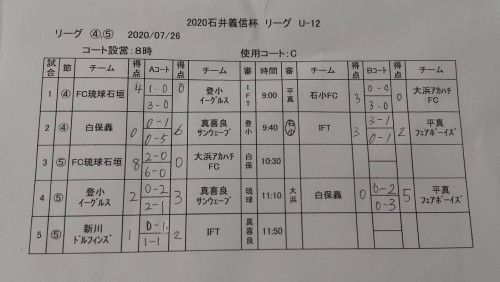 2020石井義信杯 リーグ U-12
リーグ ④,⑤ 2020/07/26
コート設営:8時 使用コート:C
試合 節 チーム 得点 Aコート 得点 チーム 審 時間 審 チーム 得点 Bコート 得点 チーム
1 ④ FC琉球石垣 4 1-0 3-0 0 登小イーグルス IFT 9:00 平真 石小FC 3 0-0 3-0 0 大浜アカハチFC
2 ④ 白保轟 0 0-1 0-5 6 真喜良サンウェーブ 登小 9:40 石小 IFT 3 3-1 0-1 2 平真フェアボーイズ
3 ⑤ FC琉球石垣 8 2-0 6-0 0 大浜アカハチFC 白保 10:30
4 ⑤ 登小イーグルス 2 0-2 2-1 3 真喜良サンウェーブ 琉球 11:10 大浜 白保轟 0 0-2 0-3 5 平真フェアボーイズ
5 ⑤ 新川ドルフィンズ 1 0-1 1-1 2 IFT 真喜良 11:50